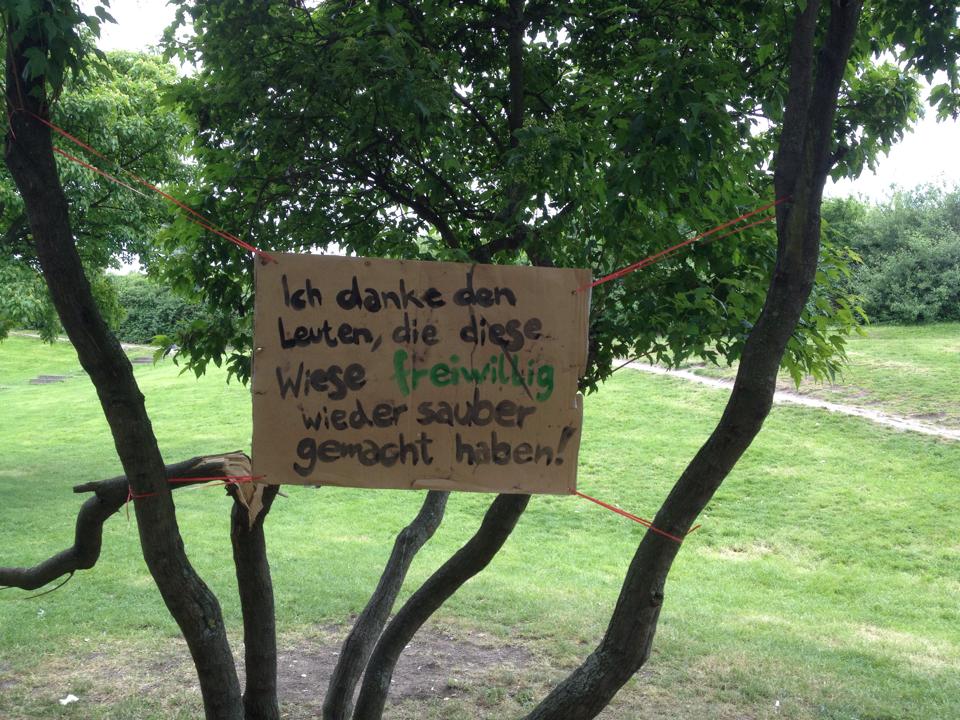 Ich danke den
Leuten, die diese
Wiese freiwillig
wieder sauber
gemacht haben!